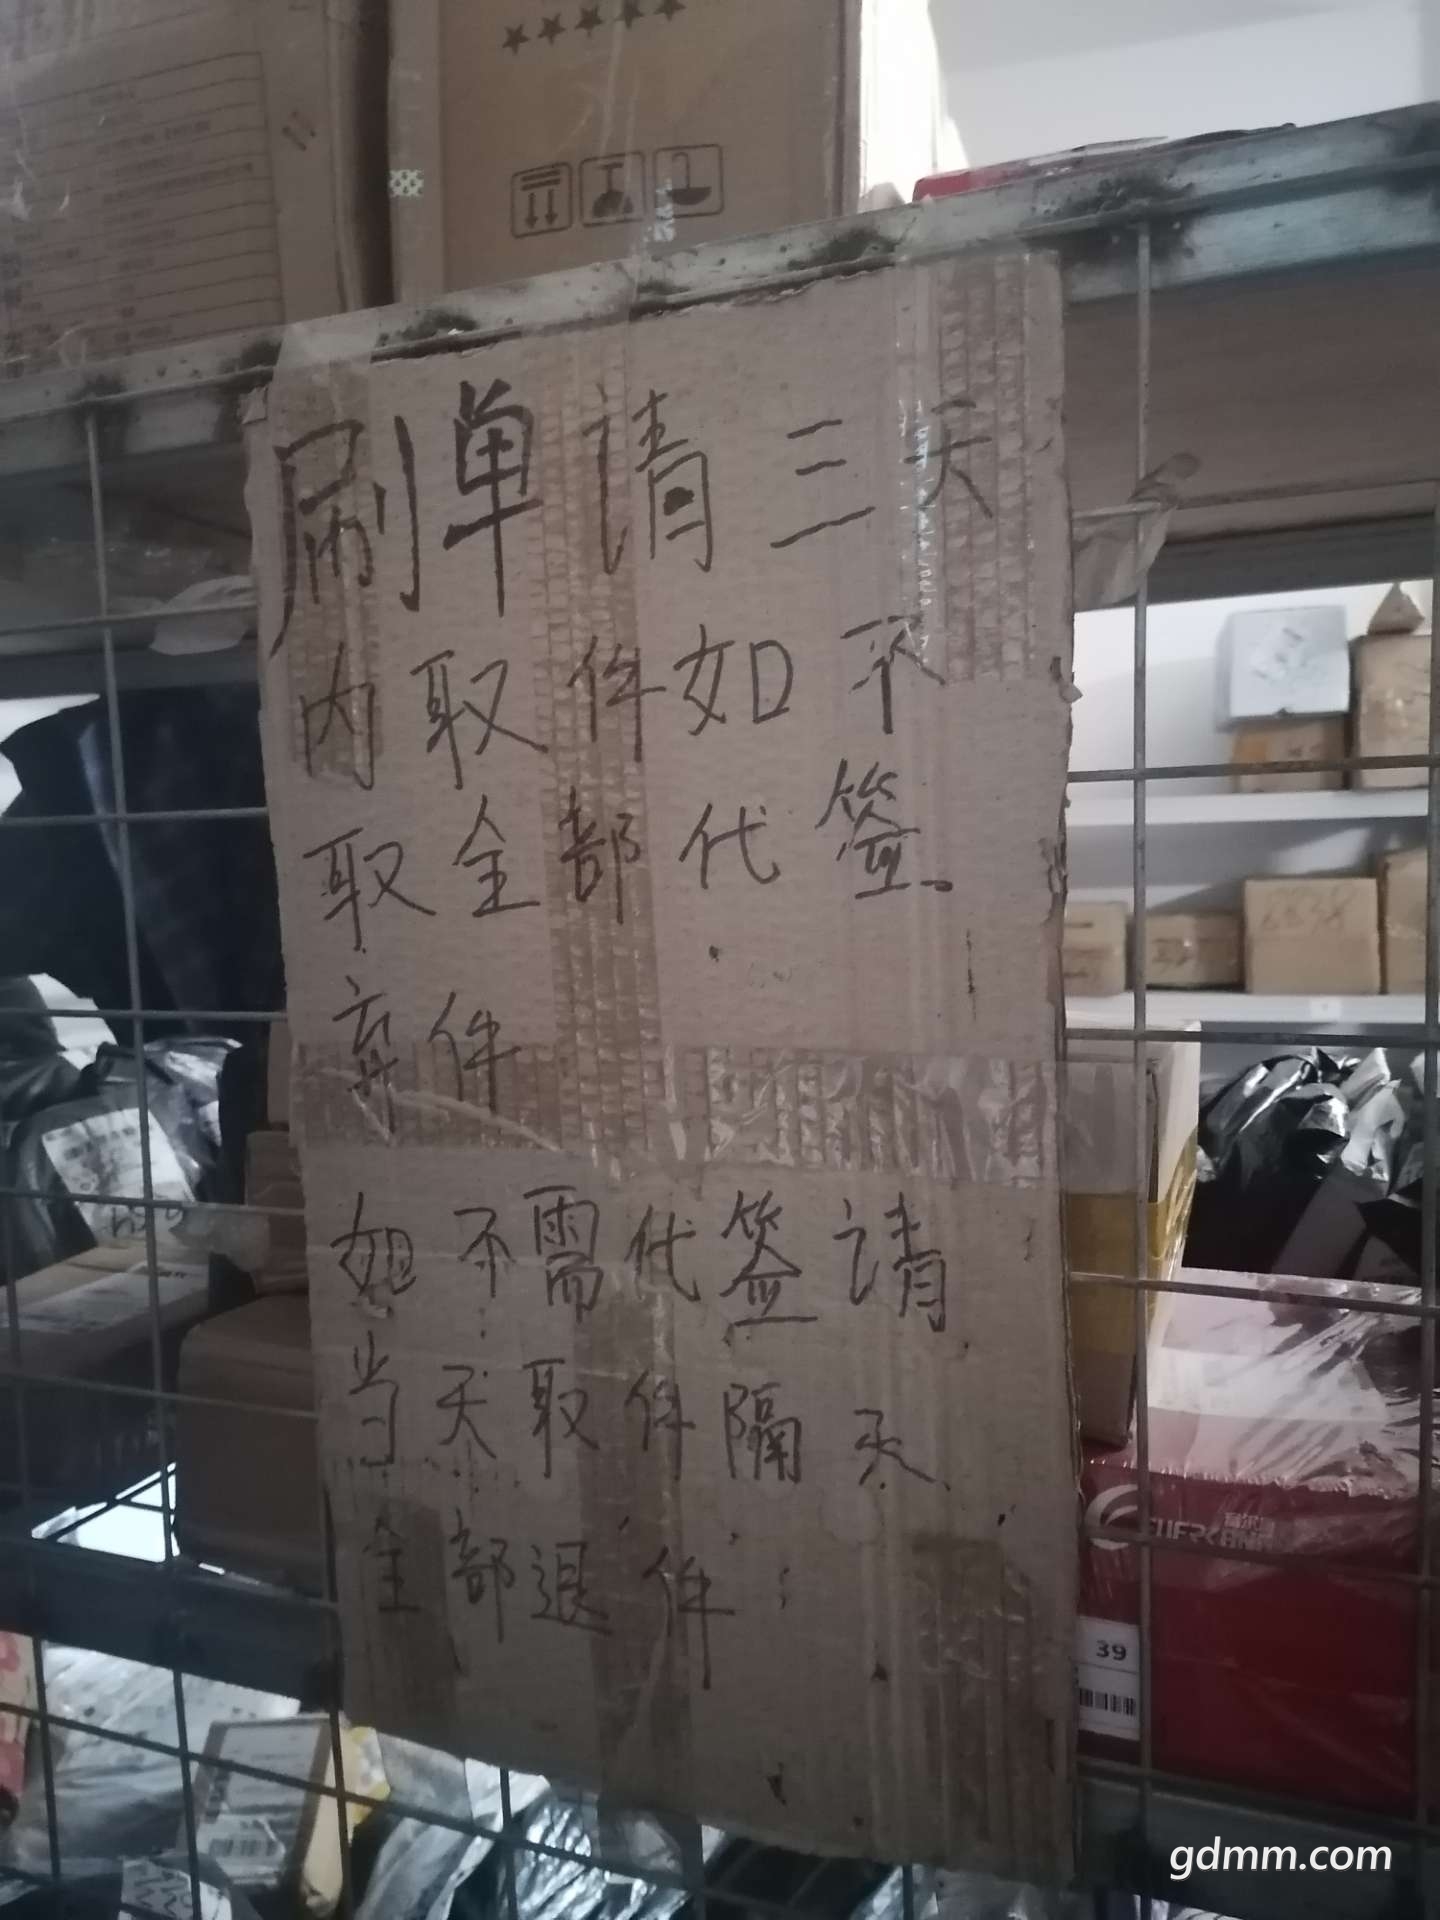 刷单请三天
内取件如不
取全部代签
弃件
如不需代签请
当天取件隔天
全部退件
39
gdmm.com